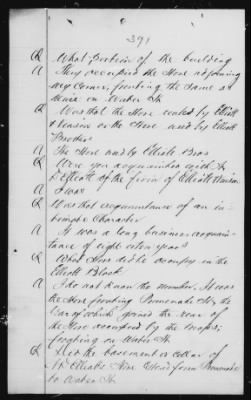 391
Q What portion of the building
A They occupied the Store adjoining
my corner, fronting the same as
mine on Water St
Q Was that the Store rented by Elliott
& Vinson or the Store used by Elliott
Brothers
A The Store used by Elliott Bros
Q Were you acquainted with
Elliott of the firm of Elliott & Vinson
A I was
Q Was that acquaintance of an in-
timate Character
A It was a long business acquain-
tance of eight or ten years
Q What Store did he occupy in the
Elliott Block
A I do not know the number. It was
the Store fronting Promenade St, the
rear of which joined the rear of
the Store occupied by the
fronting on Water St
Q Did the basement or cellar of
Mr Elliotts Store extend from Promenade
to Water St